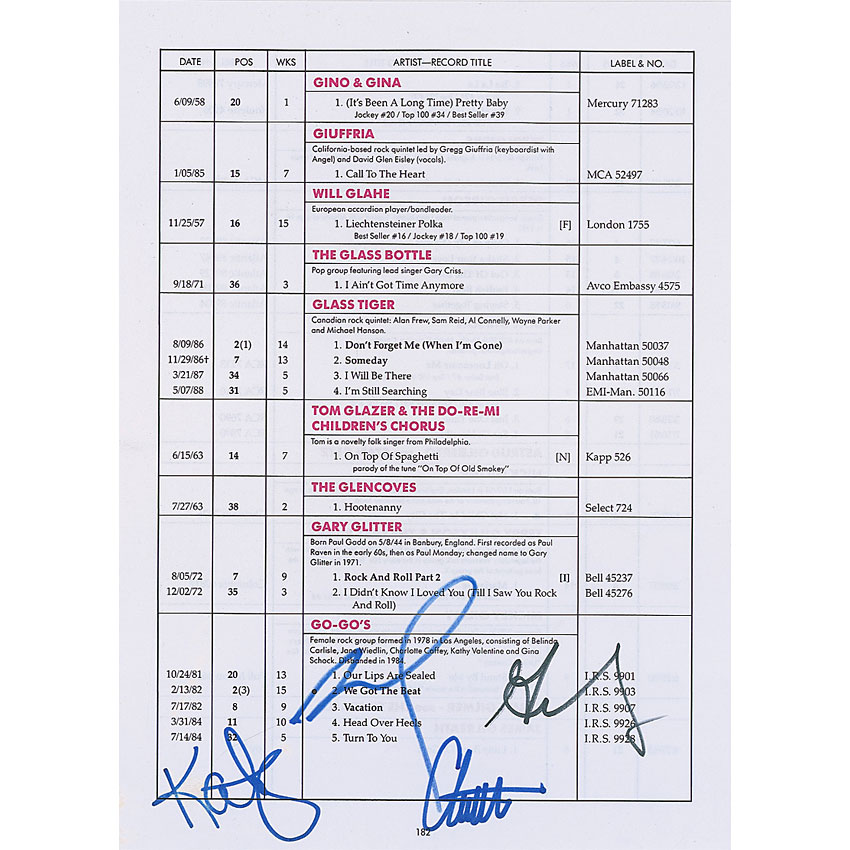 DATE POS WKS ARTIST—RECORD TITLE LABEL & NO.
GINO & GINA
6/09/58 20 1 1. (It's Been A Long Time) Pretty Baby Mercury 71283
Jockey #20 / Top 100 #34 / Best Seller #39
GIUFFRIA
California-based rock quintet led by Gregg Giuffria (keyboardist with
Angel) and David Glen Eisley (vocals).
1/05/85 15 7 1. Call To The Heart MCA 52497
WILL GLAHE
European accordion player/bandleader.
11/25/57 16 15 1. Liechtensteiner Polka [F] London 1755
Best Seller #16 / Jockey #18 / Top 100 #19
THE GLASS BOTTLE
Pop group featuring lead singer Gary Criss.
9/18/71 36 3 1. I Ain't Got Time Anymore Avco Embassy 4575
GLASS TIGER
Canadian rock quintet: Alan Frew, Sam Reid, Al Connelly, Wayne Parker
and Michael Hanson.
8/09/86 2(1) 14 1. Don't Forget Me (When I'm Gone) Manhattan 50037
11/29/86† 7 13 2. Someday Manhattan 50048
3/21/87 34 5 3. I Will Be There Manhattan 50066
5/07/88 31 5 4. I'm Still Searching EMI-Man. 50116
TOM GLAZER & THE DO-RE-MI
CHILDREN'S CHORUS
Tom is a novelty folk singer from Philadelphia.
6/15/63 14 7 1. On Top Of Spaghetti [N] Kapp 526
parody of the tune "On Top Of Old Smokey"
THE GLENCOVES
7/27/63 38 2 1. Hootenanny Select 724
GARY GLITTER
Born Paul Gadd on 5/8/44 in Banbury, England. First recorded as Paul
Raven in the early 60s, then as Paul Monday; changed name to Gary
Glitter in 1971.
8/05/72 7 9 1. Rock And Roll Part 2 [I] Bell 45237
12/02/72 35 3 2. I Didn't Know I Loved You (Till I Saw You Rock Bell 45276
And Roll)
GO-GO'S
Female rock group formed in 1978 in Los Angeles, consisting of Belinda
Carlisle, Jane Wiedlin, Charlotte Caffey, Kathy Valentine and Gina
Schock. Disbanded in 1984.
10/24/81 20 13 1. Our Lips Are Sealed I.R.S. 9901
2/13/82 2(3) 15 ● 2. We Got The Beat I.R.S. 9903
7/17/82 8 9 3. Vacation I.R.S. 9907
3/31/84 11 10 4. Head Over Heels I.R.S. 9926
7/14/84 32 5 5. Turn To You I.R.S. 9928
182